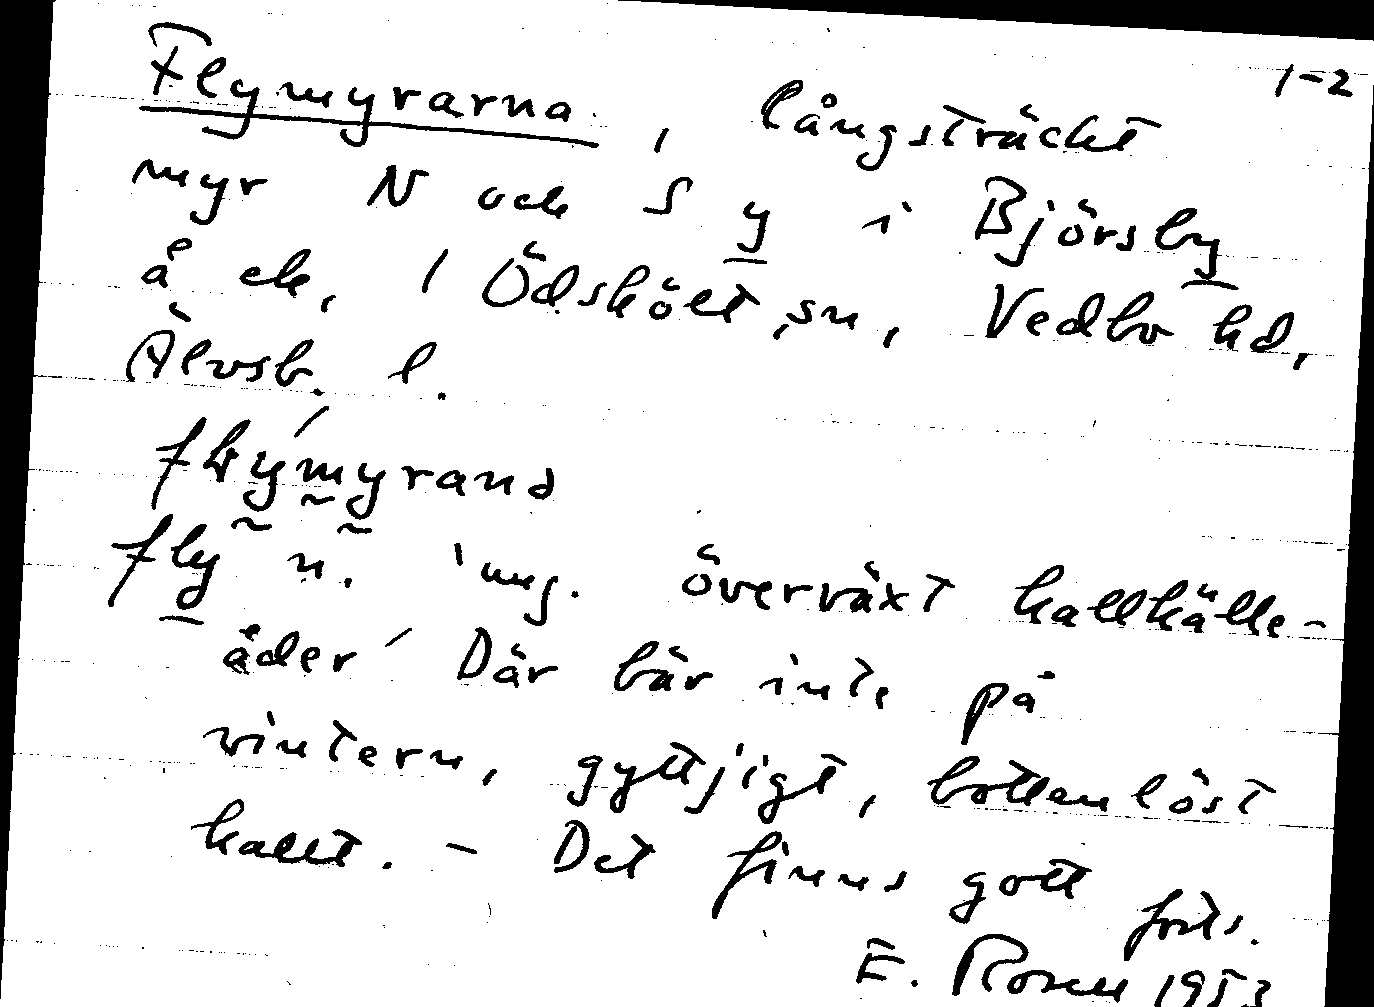 1-2
Flymyrarna, långsträckt
myr N och S y i Björsby
å ek, 1 Ödsköлt sn, Vedbo hd,
Älvsb. l.
flýmyrana
fly n. 'ung. överväxt kallkälle-
åder' Där bär inte på
vintern, gyttjigt, bottenlöst
kallt. - Det finns gott
forts.
E. Rosen 1953